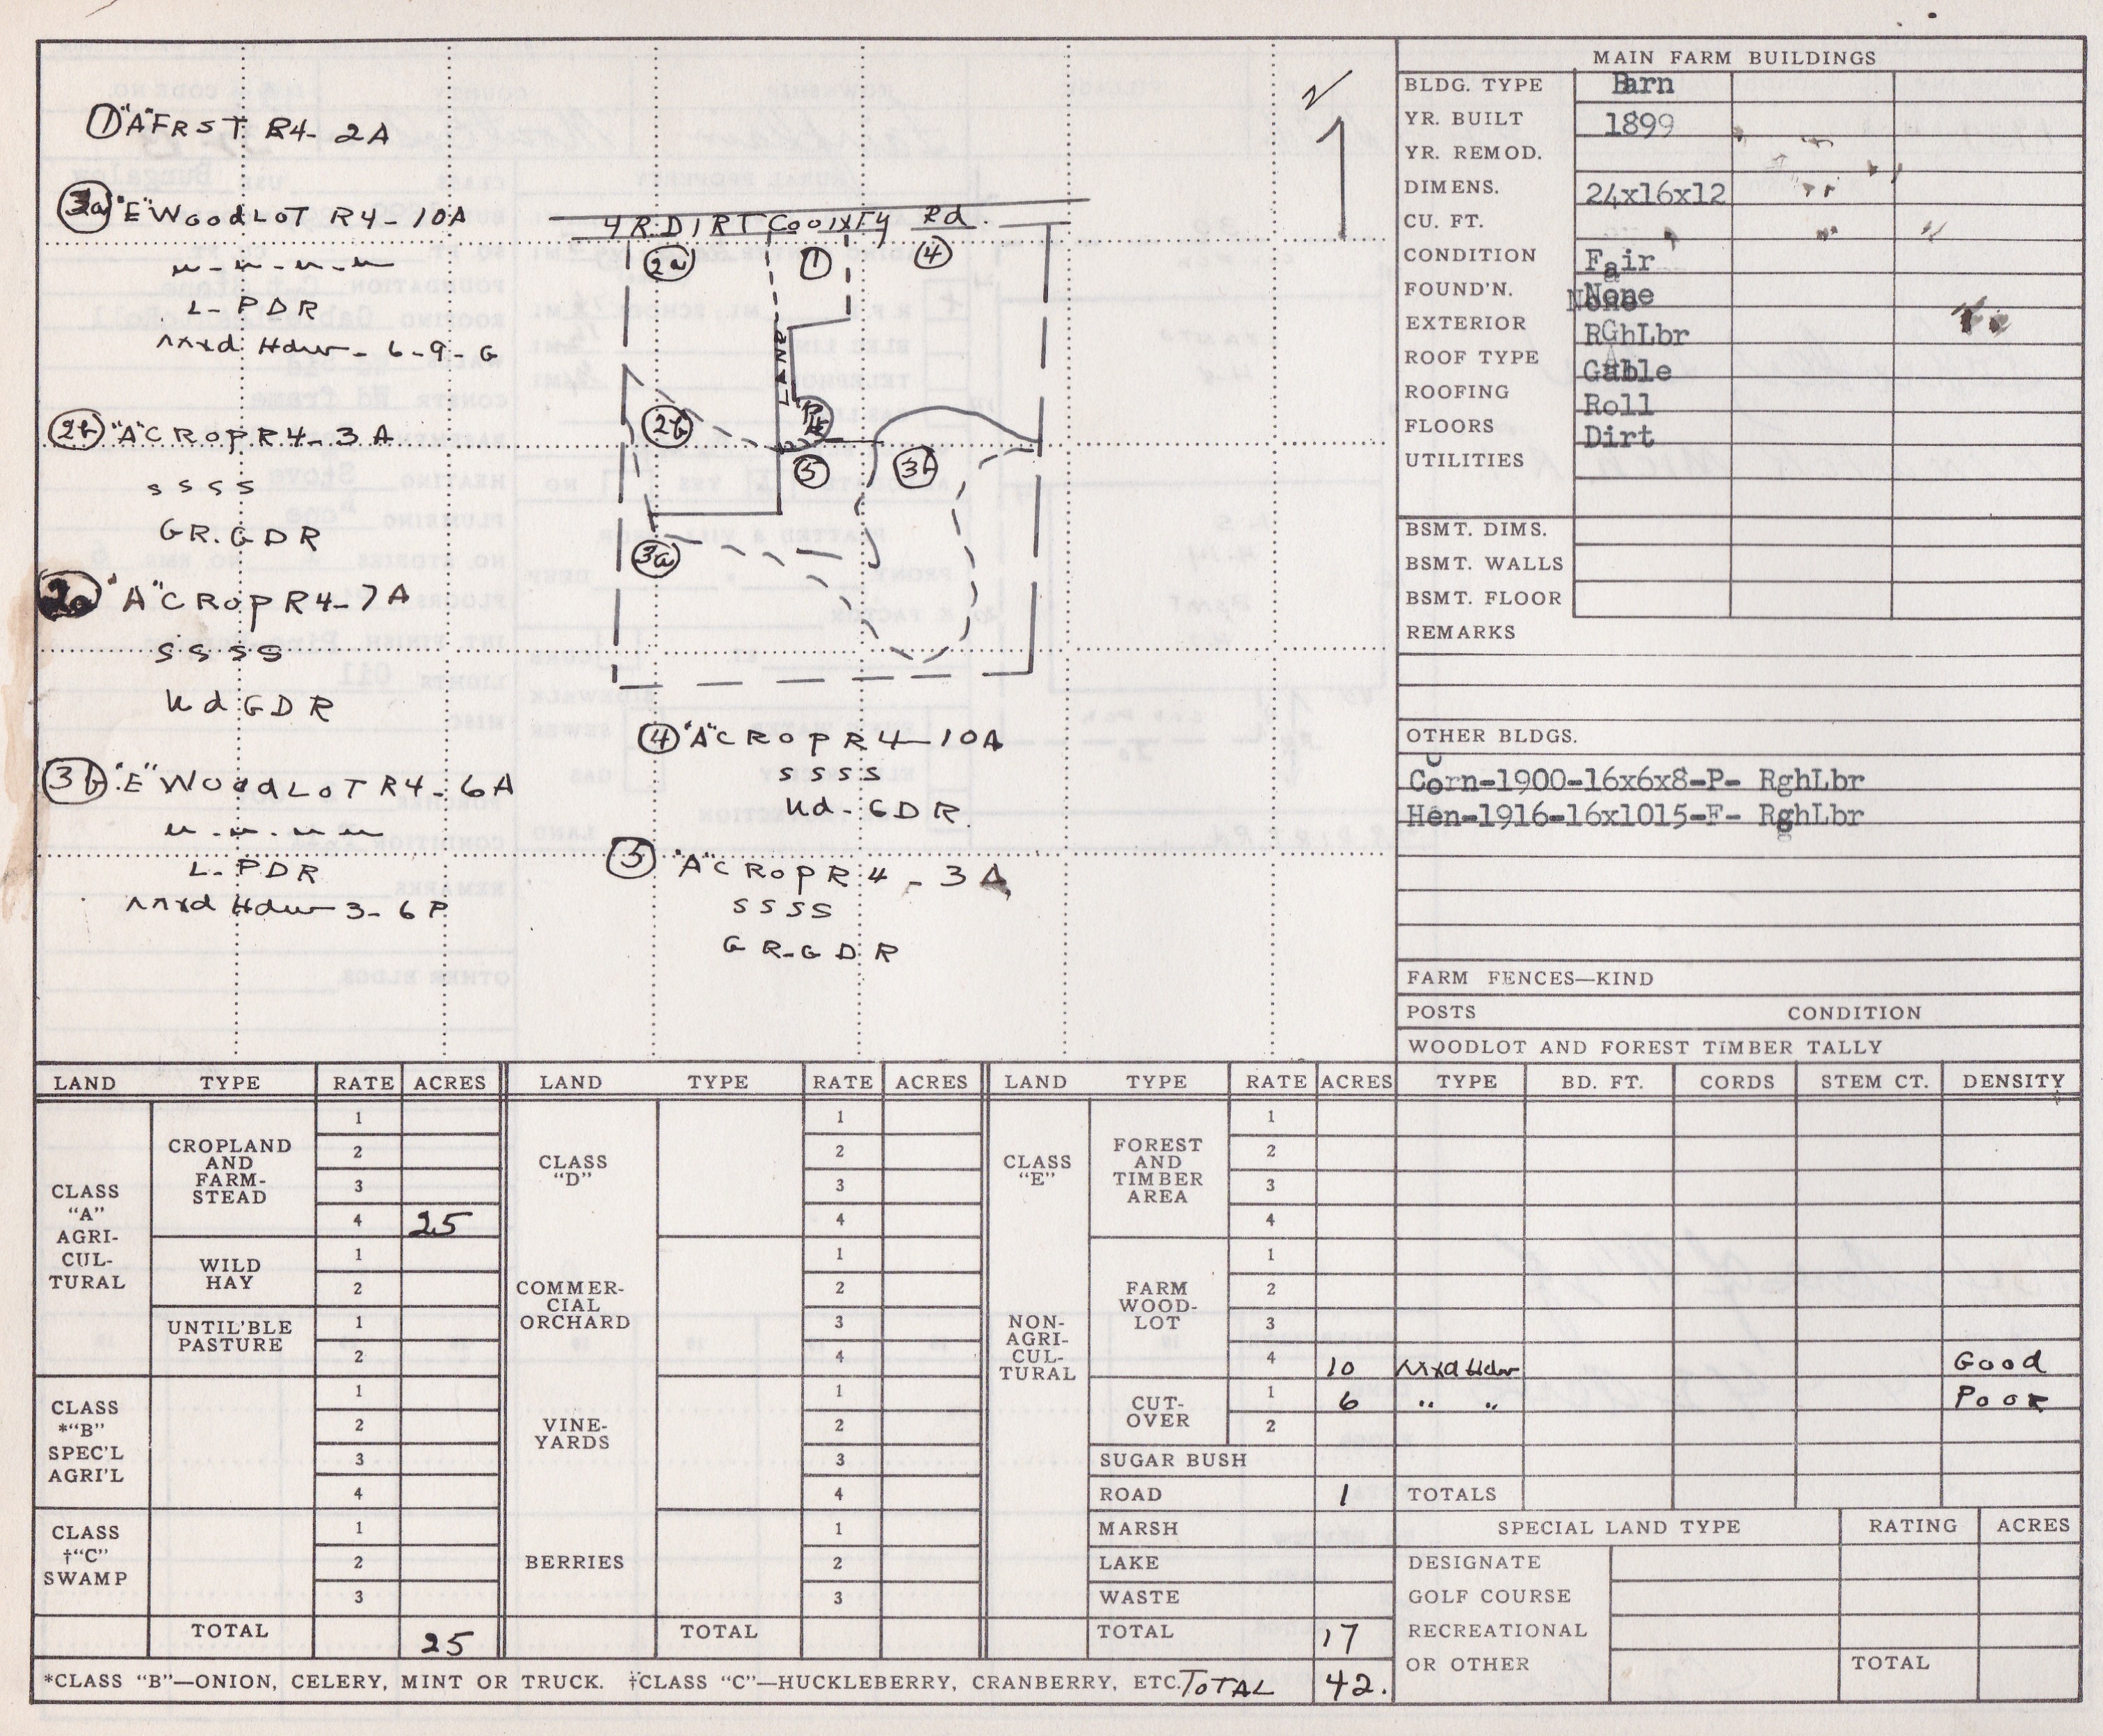 ① "A" FRST R4- 2A
③a "E" WoodLoT R4-10A
L- PDR
mxd Hdw - 6-9-G
②b "A" CRop R4-3A
s s s s
GR.GDR
②a "A" CRop R4-7A
s s s s
Ud GDR
③b "E" WoodLoT R4-6A
L- PDR
mxd Hdw 3-6P
1
4 R. DIRT County Rd
②a ① ④
LANE
②b
⑤ ③b
③a
④ "A" CRop R4-10A
s s s s
Ud-GDR
⑤ "A" CRop R4-3A
s s s s
GR-GDR
MAIN FARM BUILDINGS
BLDG. TYPE Barn
YR. BUILT 1899
YR. REMOD.
DIMENS. 24x16x12
CU. FT.
CONDITION Fair
FOUND'N. None
EXTERIOR RGhLbr
ROOF TYPE Gable
ROOFING Roll
FLOORS Dirt
UTILITIES
BSMT. DIMS.
BSMT. WALLS
BSMT. FLOOR
REMARKS
OTHER BLDGS.
Corn-1900-16x6x8-P- RghLbr
Hen-1916-16x1015-F- RghLbr
FARM FENCES—KIND
POSTS CONDITION
WOODLOT AND FOREST TIMBER TALLY
LAND TYPE RATE ACRES LAND TYPE RATE ACRES LAND TYPE RATE ACRES TYPE BD. FT. CORDS STEM CT. DENSITY
CLASS
"A"
AGRI-
CUL-
TURAL
CROPLAND
AND
FARM-
STEAD
1
2
3
4 25
WILD
HAY
1
2
UNTIL'BLE
PASTURE
1
2
CLASS
*"B"
SPEC'L
AGRI'L
1
2
3
4
CLASS
†"C"
SWAMP
1
2
3
TOTAL 25
CLASS
"D"
COMMER-
CIAL
ORCHARD
1
2
3
4
1
2
3
4
VINE-
YARDS
1
2
3
4
BERRIES
1
2
3
TOTAL
CLASS
"E"
NON-
AGRI-
CUL-
TURAL
FOREST
AND
TIMBER
AREA
1
2
3
4
FARM
WOOD-
LOT
1
2
3
4 10 Mxd Hdw Good
CUT-
OVER
1 6 " " Poor
2
SUGAR BUSH
ROAD 1
MARSH
LAKE
WASTE
TOTAL 17
TOTALS
SPECIAL LAND TYPE RATING ACRES
DESIGNATE
GOLF COURSE
RECREATIONAL
OR OTHER TOTAL
*CLASS "B"—ONION, CELERY, MINT OR TRUCK. †CLASS "C"—HUCKLEBERRY, CRANBERRY, ETC. ToTAL 42.